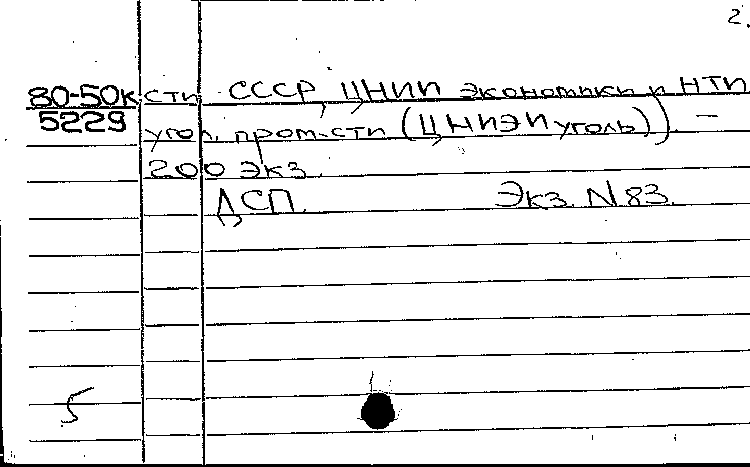 2.
80-50к сти СССР, ЦНИИ экономики и НТИ
5229 угол. пром-сти (ЦНИЭИуголь)). —
200 экз.
ДСП. Экз. N 83.
5